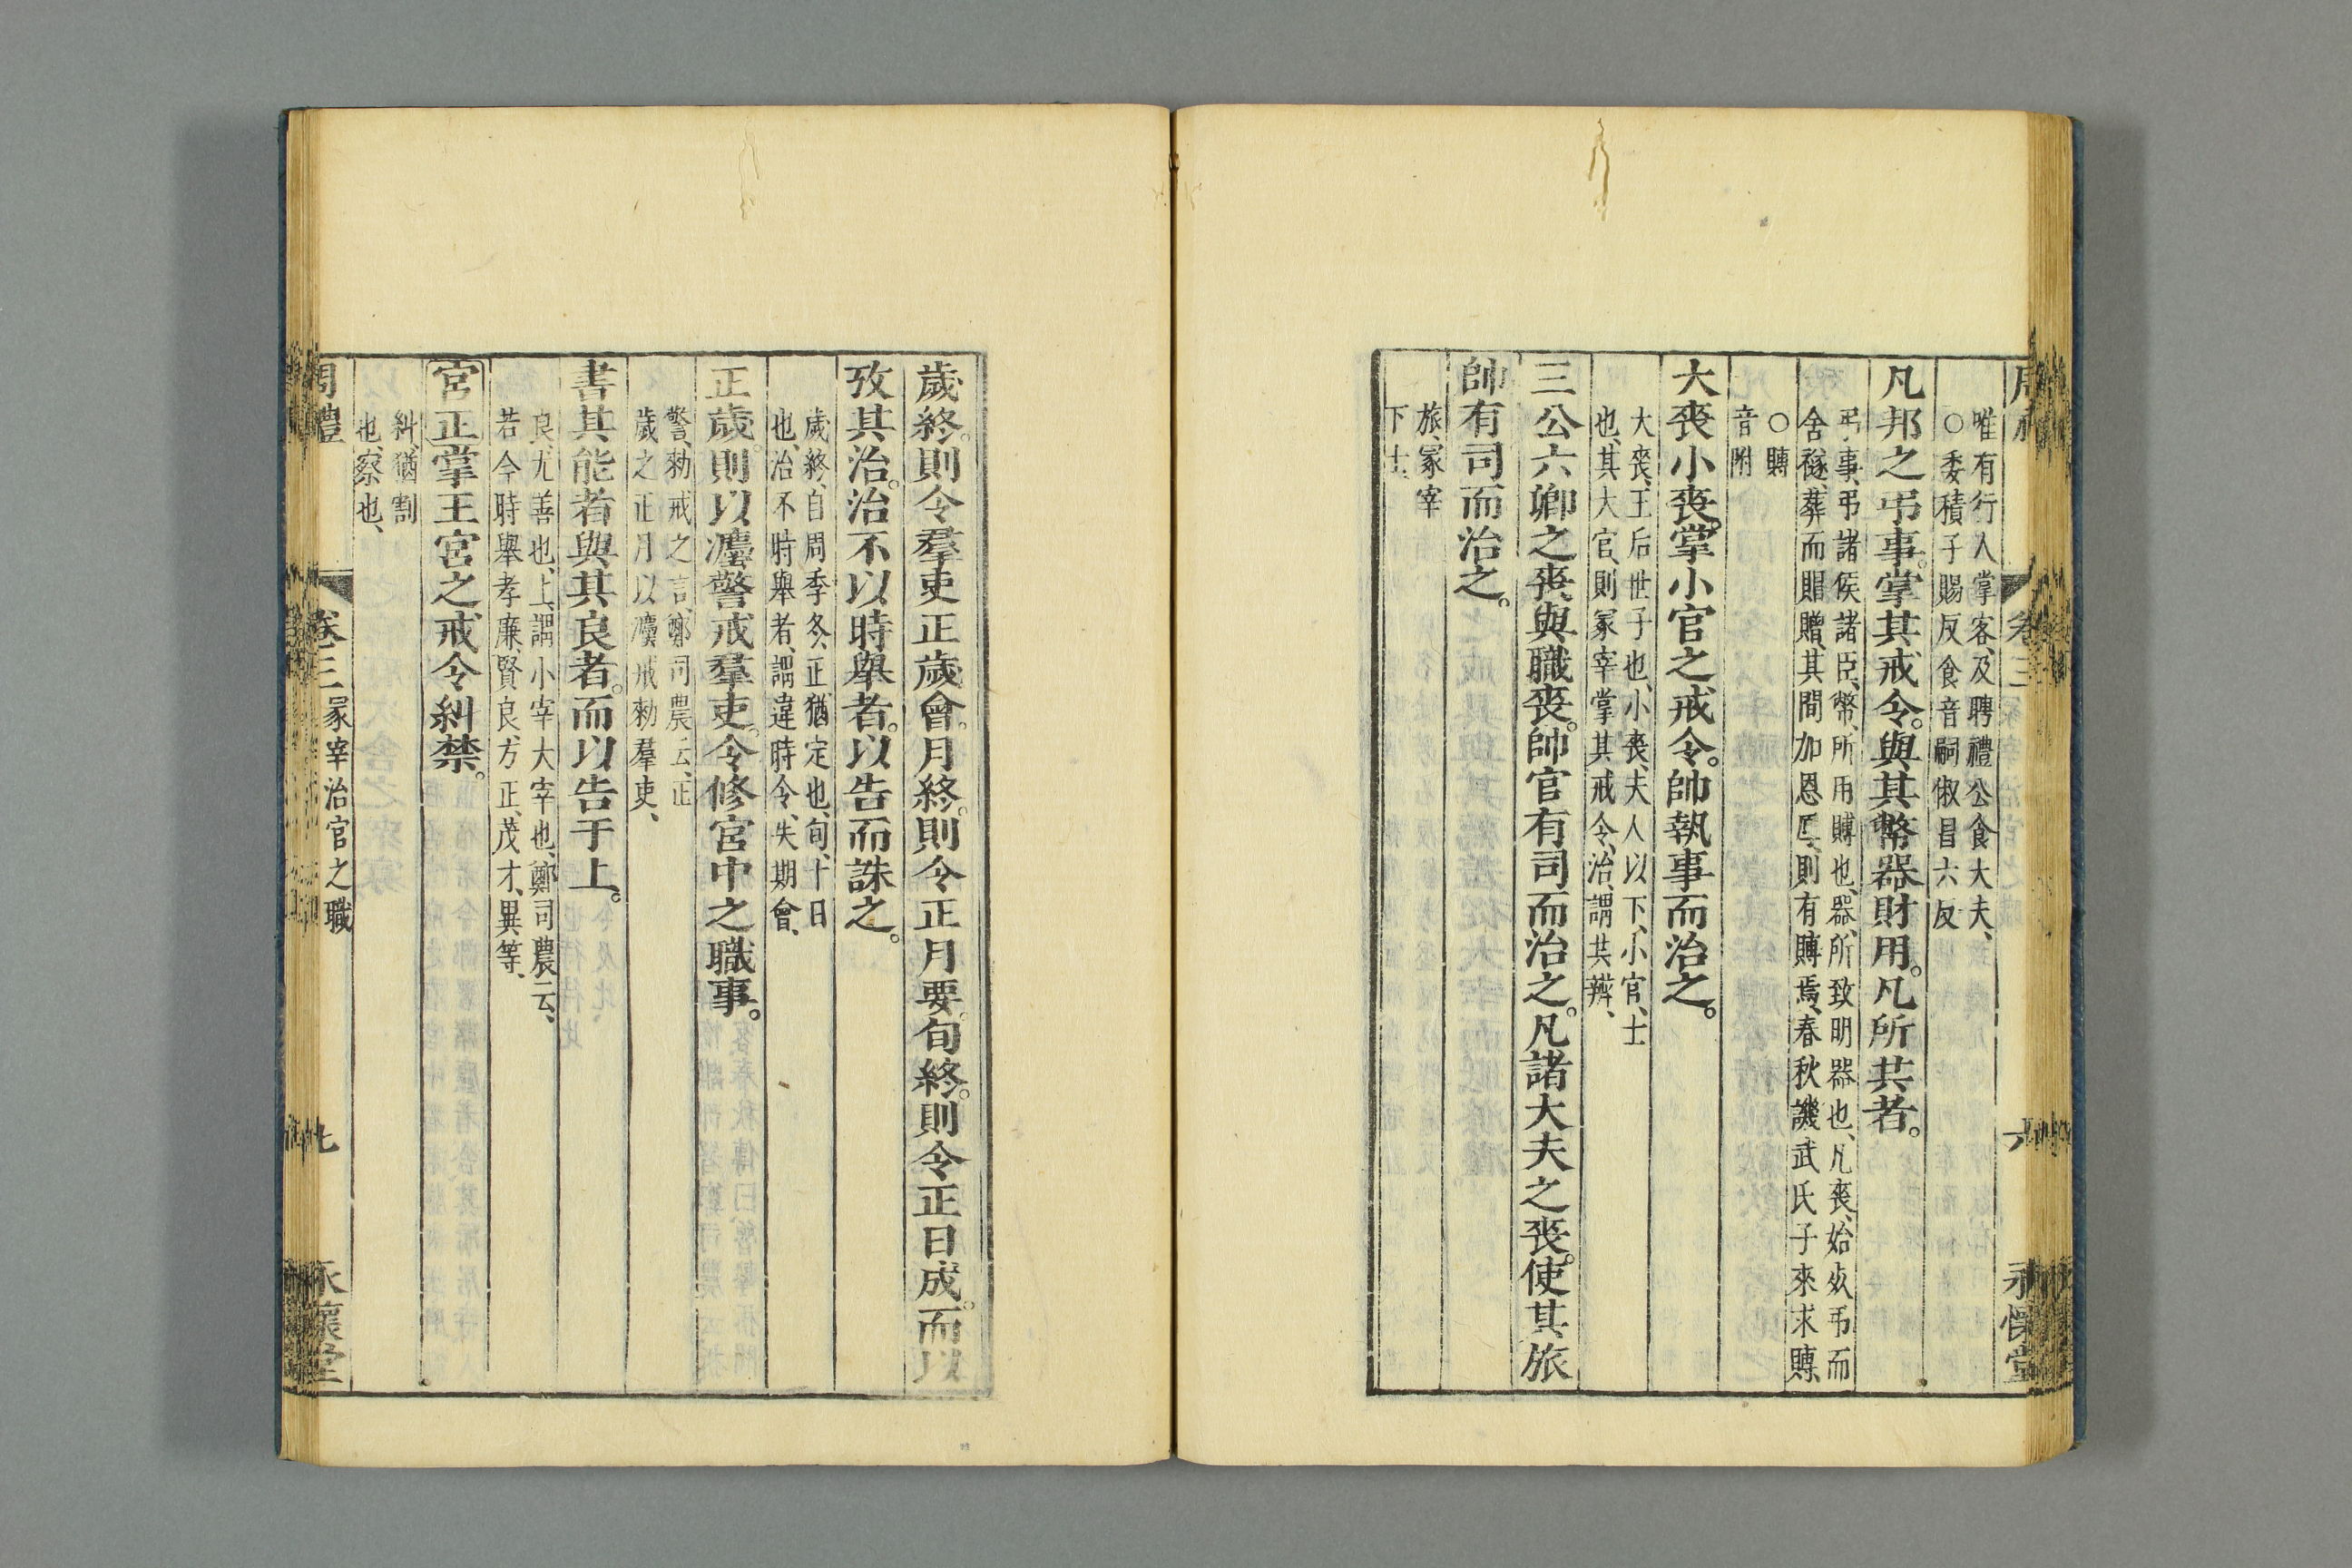 卷三
六
永懷堂
唯有行人掌客、及聘禮公食大夫、
○委積、子賜反食音嗣俶昌六反
凡邦之弔事。掌其戒令。與其幣器財用。凡所共者。
弔事、弔諸侯諸臣、幣、所用賻也、器、所致明器也、凡喪、始死弔而
含襚、葬而賵贈、其間加恩厚、則有賻焉、春秋譏武氏子來求賻、
○賻
音附
大喪小喪。掌小官之戒令。帥執事而治之。
大喪、王后世子也、小喪、夫人以下、小官、士
也、其大官、則冢宰掌其戒令、治、謂共辨、
三公六卿之喪。與職喪。帥官有司而治之。凡諸大夫之喪。使其旅
帥有司而治之。
旅、冢宰
下士
歲終。則令羣吏正歲會。月終。則令正月要。旬終。則令正日成。而以
攷其治。治不以時舉者。以告而誅之。
歲終、自周季冬、正猶定也、旬、十日
也、治不時舉者、謂違時令、失期會、
正歲。則以灋警戒羣吏。令修宮中之職事。
警、勑戒之言、鄭司農云、正
歲之正月以灋戒勑羣吏、
書其能者與其良者。而以告于上。
良、尤善也、上、謂小宰大宰也、鄭司農云、
若今時舉孝廉、賢良、方正、茂才、異等、
宮正掌王宮之戒令糾禁。
糾、猶割
也、察也、
周禮
卷三
冢宰治官之職
七
永懷堂